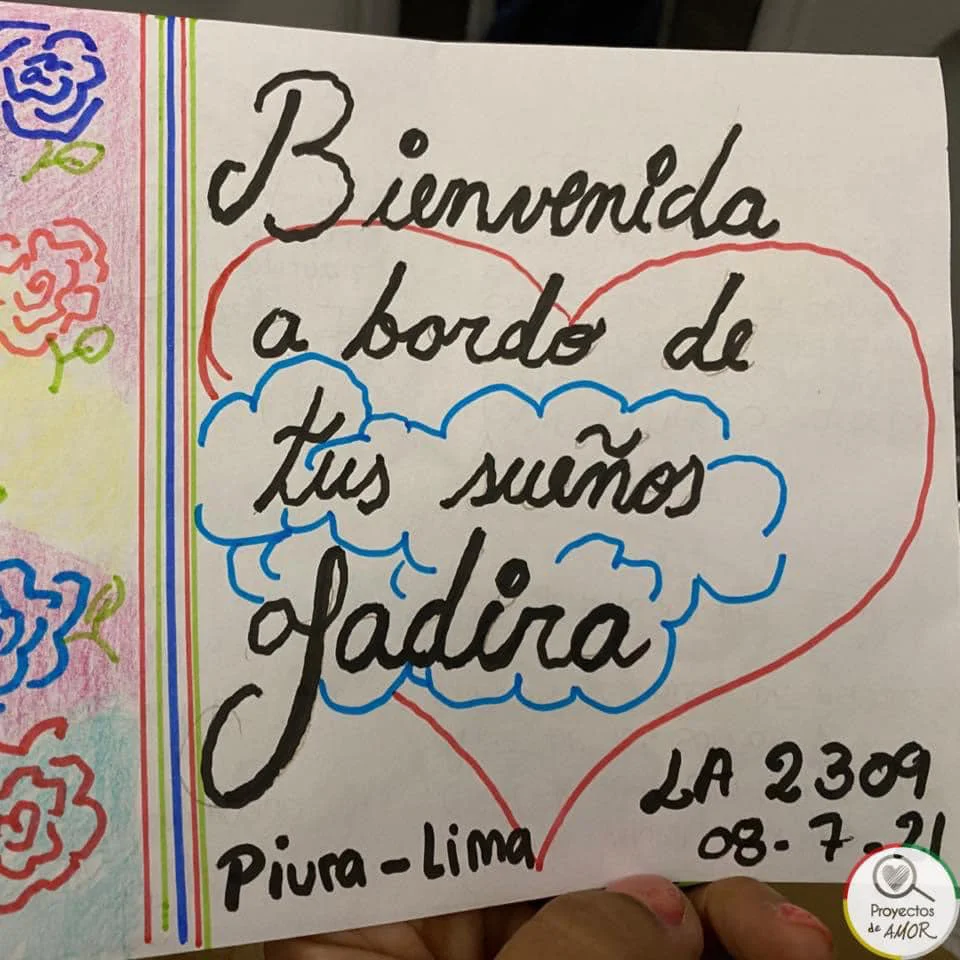 Bienvenida
a bordo de
tus sueños
Jadira
LA 2309
08-7-21
Piura-Lima
Proyectos
de AMOR